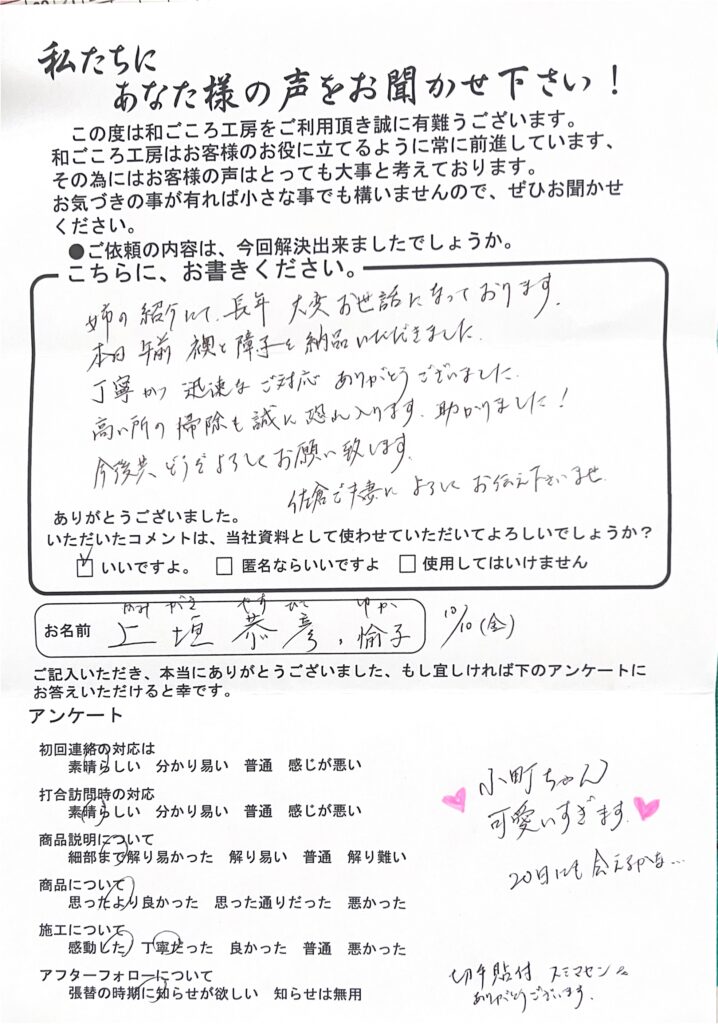 私たちに
あなた様の声をお聞かせ下さい！
この度は和ごころ工房をご利用頂き誠に有難うございます。
和ごころ工房はお客様のお役に立てるように常に前進しています、
その為にはお客様の声はとっても大事と考えております。
お気づきの事が有れば小さな事でも構いませんので、ぜひお聞かせ
ください。
●ご依頼の内容は、今回解決出来ましたでしょうか。
こちらに、お書きください。
姉の紹介にて、長年 大変お世話になっております。
本日午前 襖と障子を納品いただきました。
丁寧かつ 迅速なご対応 ありがとうございました。
高い所の掃除も誠に恐れ入ります。助かりました！
今後共 どうぞよろしくお願い致します。
佐倉ご夫妻に よろしく お伝え下さいませ
ありがとうございました。
いただいたコメントは、当社資料として使わせていただいてよろしいでしょうか？
☑ いいですよ。 □ 匿名ならいいですよ □ 使用してはいけません
うえ がき やす ひこ ゆか
お名前 上垣 恭彦、愉子 10/10(金)
ご記入いただき、本当にありがとうございました、もし宜しければ下のアンケートに
お答えいただけると幸です。
アンケート
初回連絡の対応は
素晴らしい 分かり易い 普通 感じが悪い
打合訪問時の対応
素晴らしい 分かり易い 普通 感じが悪い
商品説明について
細部まで解り易かった 解り易い 普通 解り難い
商品について
思ったより良かった 思った通りだった 悪かった
施工について
感動した 丁寧だった 良かった 普通 悪かった
アフターフォローについて
張替の時期に知らせが欲しい 知らせは無用
小町ちゃん
可愛いすぎます
20日にも会えるかな…
切手貼付 スミマセン
ありがとうございます。